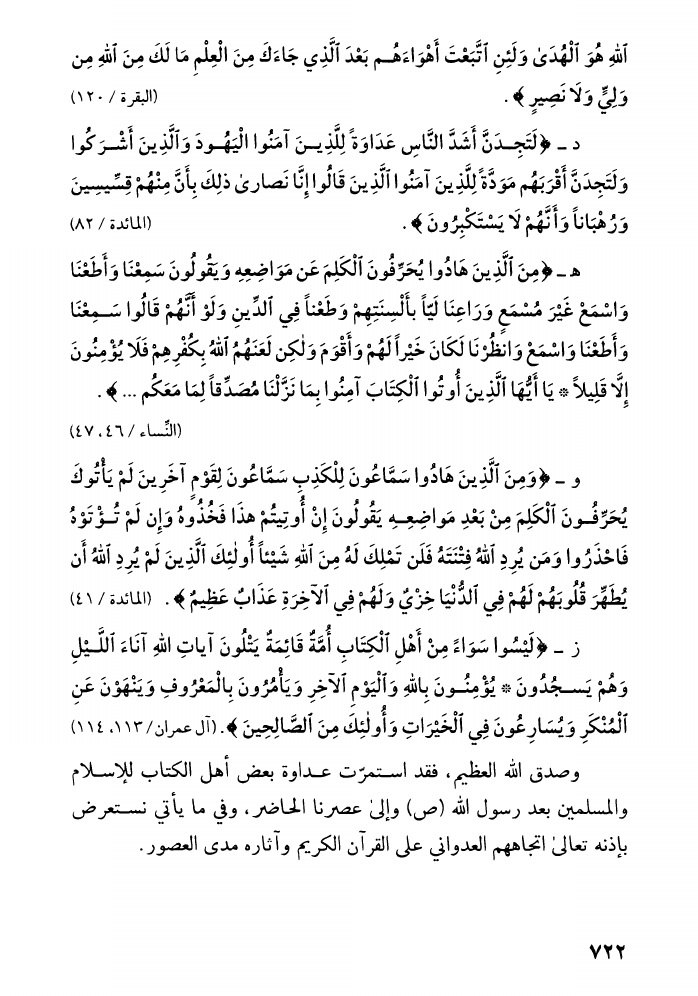 ٱللهِ هُوَ ٱلْهُدَىٰ وَلَئِنِ ٱتَّبَعْتَ أَهْوَاءَهُـم بَعْدَ ٱلَّذِي جَاءَكَ مِنَ الْعِلْمِ مَا لَكَ مِنَ ٱللهِ مِن
وَلِيٍّ وَلَا نَصِيرٍ ﴾ . (البقرة / ١٢٠)
د ـ ﴿لَتَجِـدَنَّ أَشَدَّ النَّاسِ عَدَاوَةً لِلَّذِيـنَ آمَنُوا الْيَهُـودَ وَٱلَّذِينَ أَشْـرَكُوا
وَلَتَجِدَنَّ أَقْرَبَهُم مَوَدَّةً لِلَّذِينَ آمَنُوا ٱلَّذِينَ قَالُوا إِنَّا نَصارىٰ ذلِكَ بِأَنَّ مِنْهُمْ قِسِّيسِينَ
وَرُهْبَاناً وَأَنَّهُمْ لَا يَسْتَكْبِرُونَ ﴾ . (المائدة / ٨٢)
ه ـ ﴿مِنَ ٱلَّذِينَ هَادُوا يُحَرِّفُونَ ٱلْكَلِمَ عَن مَوَاضِعِهِ وَيَقُولُونَ سَمِعْنَا وَأَطَعْنَا
وَاسْمَعْ غَيْرَ مُسْمَعٍ وَرَاعِنَا لَيّاً بأَلْسِنَتِهِمْ وَطَعْناً فِي ٱلدِّينِ وَلَوْ أَنَّهُمْ قَالُوا سَـمِعْنَا
وَأَطَعْنَا وَاسْمَعْ وَانظُرْنَا لَكَانَ خَيْراً لَهُمْ وَأَقْوَمَ وَلٰكِن لَعَنَهُمُ ٱللهُ بِكُفْرِهِمْ فَلَا يُؤْمِنُونَ
إِلَّا قَلِيلاً * يَا أَيُّهَا ٱلَّذِينَ أُوتُوا ٱلْكِتَابَ آمِنُوا بِمَا نَزَّلْنَا مُصَدِّقاً لِمَا مَعَكُم ... ﴾ .
(النِّساء / ٤٦، ٤٧)
و ـ ﴿وَمِنَ ٱلَّذِينَ هَادُوا سَمَّاعُونَ لِلْكَذِبِ سَمَّاعُونَ لِقَوْمٍ آخَرِينَ لَمْ يَأْتُوكَ
يُحَرِّفُـونَ ٱلْكَلِمَ مِنْ بَعْدِ مَواضِعِـهِ يَقُولُونَ إِنْ أُوتِيتُمْ هذَا فَخُذُوهُ وَإِن لَمْ تُـؤْتَوْهُ
فَاحْذَرُوا وَمَن يُرِدِ ٱللهُ فِتْنَتَهُ فَلَن تَمْلِكَ لَهُ مِنَ ٱللهِ شَيْئاً أُولٰئِكَ ٱلَّذِينَ لَمْ يُرِدِ ٱللهُ أَن
يُطَهِّرَ قُلُوبَهُمْ لَهُمْ فِي ٱلدُّنْيَا خِزْيٌ وَلَهُمْ فِي ٱلآخِرَةِ عَذَابٌ عَظِيمٌ ﴾ . (المائدة / ٤١)
ز ـ ﴿لَيْسُوا سَوَاءً مِنْ أَهْلِ ٱلْكِتَابِ أُمَّةٌ قَائِمَةٌ يَتْلُونَ آياتِ ٱللهِ آنَاءَ ٱللَّـيْلِ
وَهُمْ يَسـجُدُونَ * يُؤْمِنُـونَ بِاللهِ وَٱلْيَوْمِ ٱلآخِرِ وَيَأْمُرُونَ بِالْمَعْرُوفِ وَيَنْهَوْنَ عَنِ
ٱلْمُنْكَرِ وَيُسَارِعُونَ فِي ٱلْخَيْرَاتِ وَأُولٰئِكَ مِنَ ٱلصَّالِحِينَ ﴾ . (آل عمران/ ١١٣، ١١٤)
وصدق الله العظيم، فقد استمرّت عـداوة بعض أهل الكتاب للإسلام
والمسلمين بعد رسول الله (ص) وإلىٰ عصرنا الحاضر، وفي ما يأتي نسـتعرض
بإذنه تعالىٰ اتجاههم العدواني على القرآن الكريم وآثاره مدى العصور.
٧٢٢